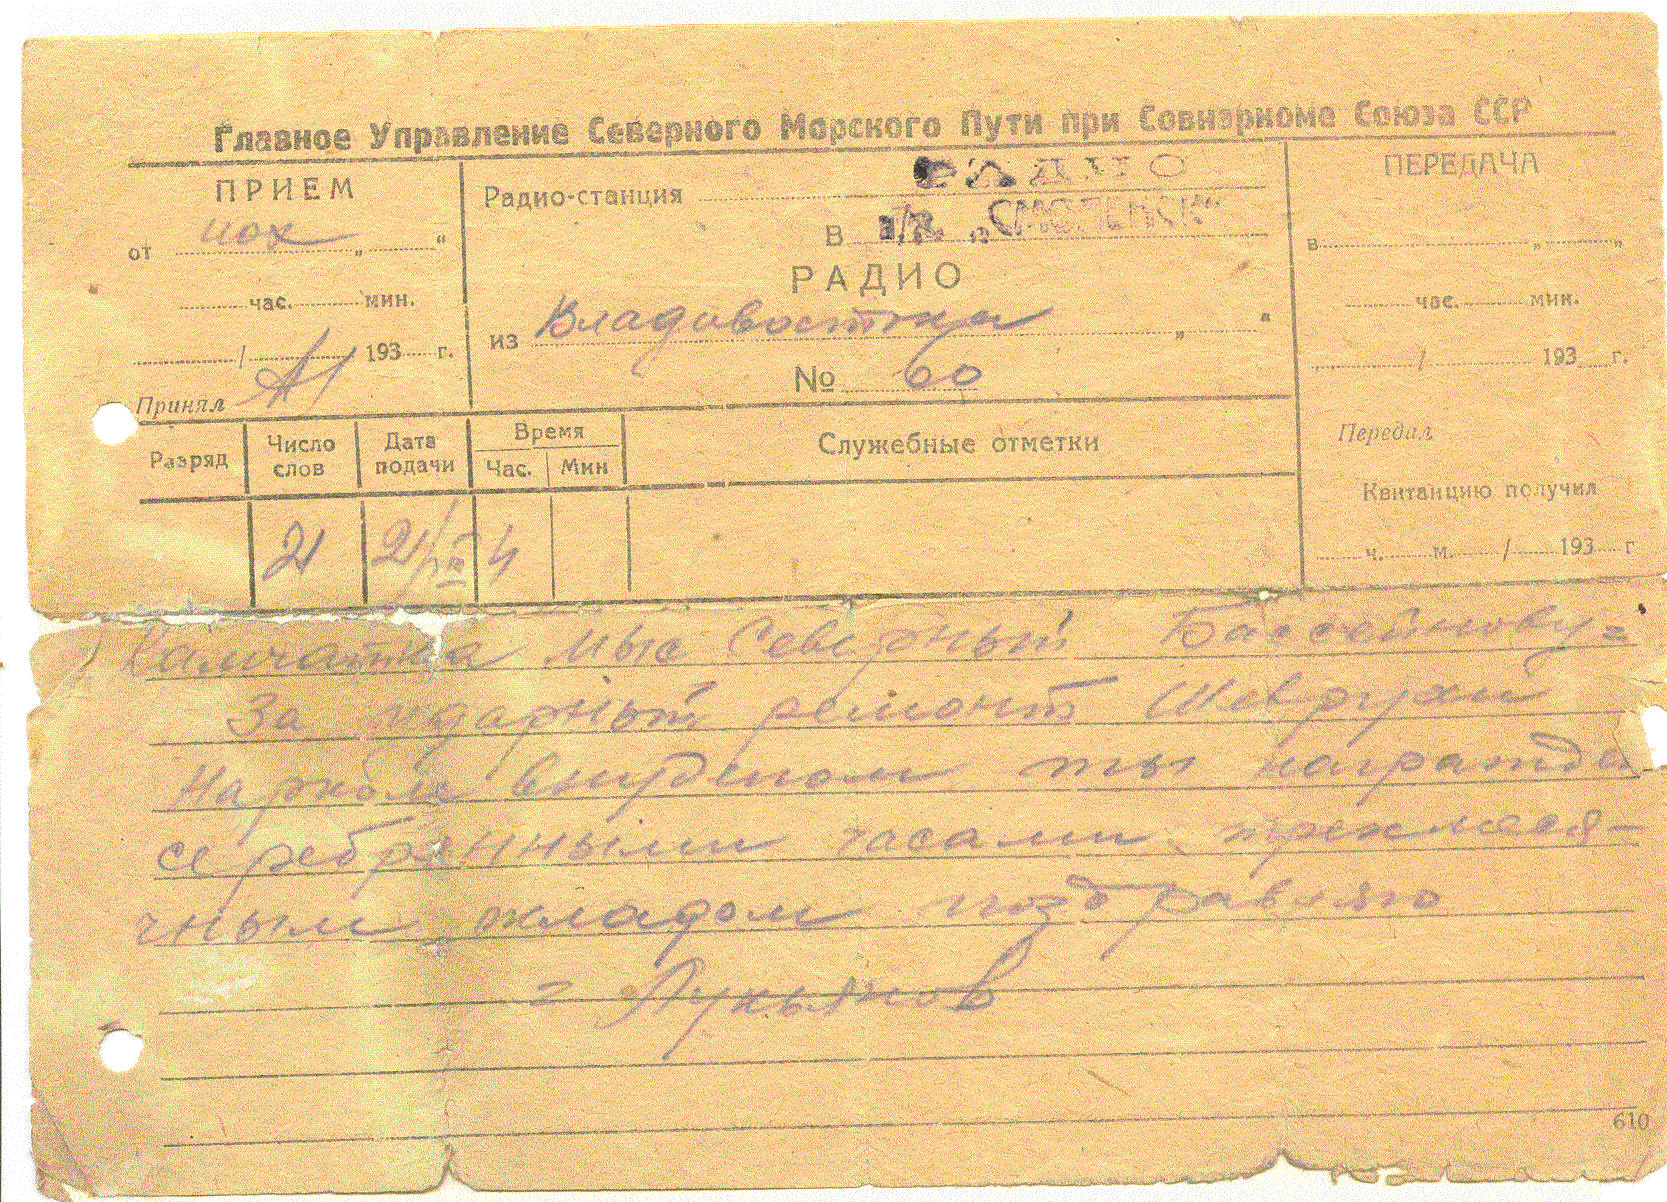 Главное Управление Северного Морского Пути при Совнаркоме Союза ССР
ПРИЕМ
от „ “
час. мин.
/ 193 г.
Принял
Радио-станция РАДИО
В п/х. „СМОЛЕНСК“
РАДИО
из Владивостока „ “
№ 60
ПЕРЕДАЧА
в „ „
час. мин.
/ 193 г.
Передал
Квитанцию получил
ч. м. / 193 г
Разряд
Число слов
Дата подачи
Время
Час. Мин
Служебные отметки
21 21/III 4
Камчатка мыс Северный Бассейнову =
За ударный ремонт
ты награжден
серебренными часами трехмеся-
чным окладом поздравляю
= Лукьянов
610